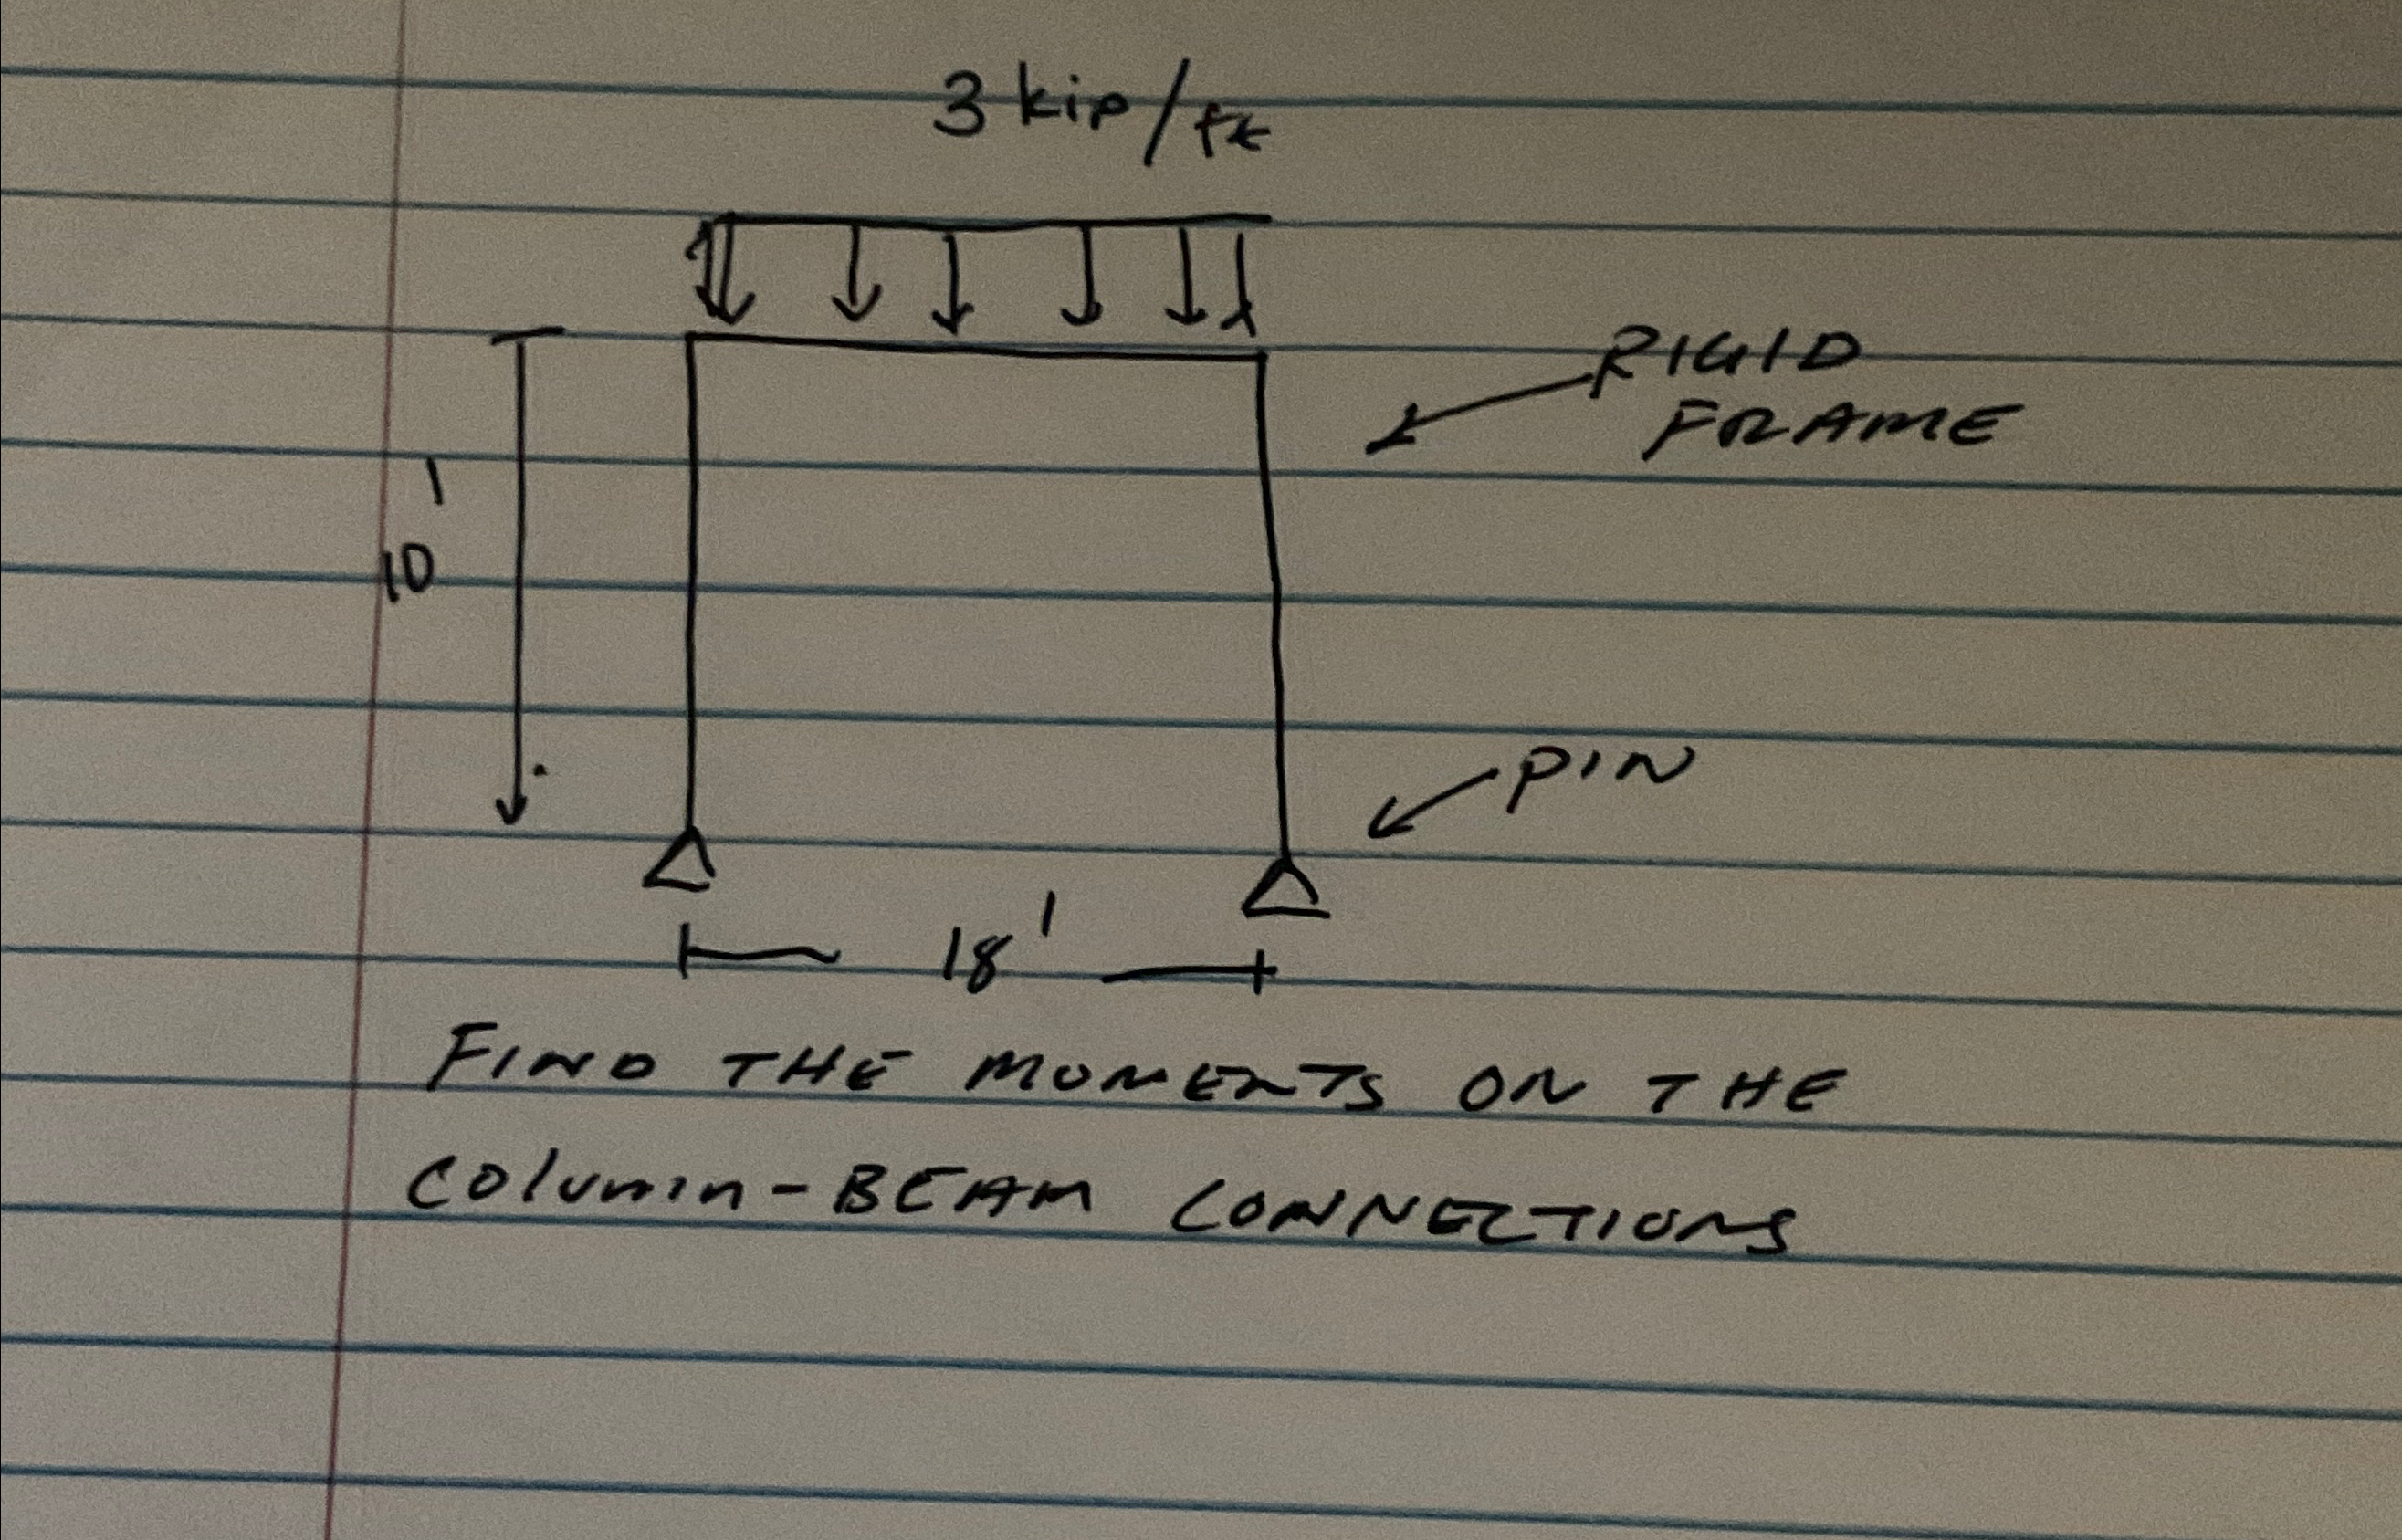 3 kip/ft
RIGID
FRAME
10'
PIN
18'
FIND THE MOMENTS ON THE
COLUMN-BEAM CONNECTIONS